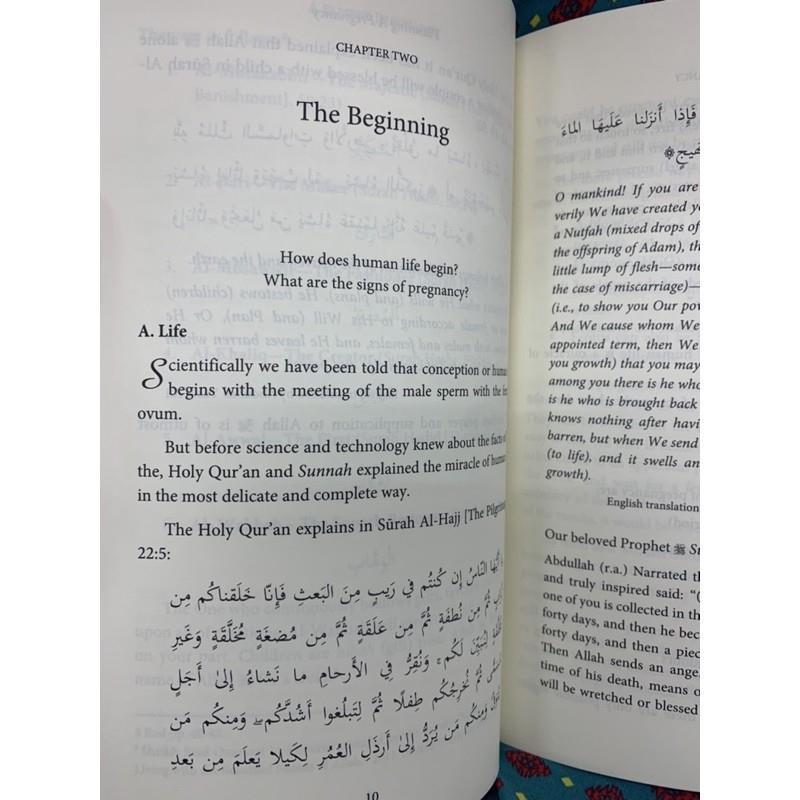 CHAPTER TWO
The Beginning
How does human life begin?
What are the signs of pregnancy?
A. Life
Scientifically we have been told that conception or human
begins with the meeting of the male sperm with the
ovum.
But before science and technology knew about the facts of
the, Holy Qur'an and Sunnah explained the miracle of human
in the most delicate and complete way.
The Holy Qur'an explains in Sūrah Al-Hajj [The Pilgrim
22:5:
النَّاسُ إِن كُنتُم في رَيبٍ مِنَ البَعثِ فَإِنّا خَلَقناكُم مِن
ثُمَّ مِن نُطفَةٍ ثُمَّ مِن عَلَقَةٍ ثُمَّ مِن مُضغَةٍ مُخَلَّقَةٍ وَغَيرِ
لِنُبَيِّنَ لَكُم ۚ وَنُقِرُّ فِي الأَرحامِ ما نَشاءُ إِلىٰ أَجَلٍ
ثُمَّ نُخرِجُكُم طِفلًا ثُمَّ لِتَبلُغوا أَشُدَّكُم ۖ وَمِنكُم مَن
وَمِنكُم مَن يُرَدُّ إِلىٰ أَرذَلِ العُمُرِ لِكَيلا يَعلَمَ مِن بَعدِ
10
فَإِذا أَنزَلنا عَلَيهَا الماءَ
بَهيجٍ
O mankind! If you are
verily We have created yo
a Nutfah (mixed drops of
the offspring of Adam), th
little lump of flesh—some
the case of miscarriage)—
(i.e., to show you Our pow
And We cause whom We
appointed term, then We
you growth) that you may
among you there is he who
is he who is brought back
knows nothing after havi
barren, but when We send
(to life), and it swells an
growth).
English translation
Our beloved Prophet ﷺ
Abdullah (r.a.) Narrated th
and truly inspired said: "(
one of you is collected in the
forty days, and then he bec
forty days, and then a piec
Then Allah sends an ange
time of his death, means o
will be wretched or blessed